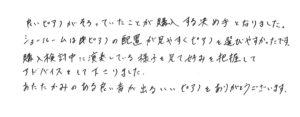 良いピアノがそろっていたことが購入する決め手となりました。
ショールームはピアノの配置が見やすくピアノを選びやすかったです。
購入検討中に演奏している様子を見て好みを把握して
アドバイスをして下さりました。
あたたかみのある良い音が出るいいピアノをありがとうございます。